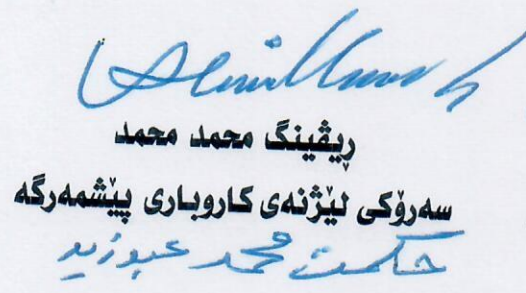 ڕیڤینگ محمد محمد
سەرۆکی لێژنەی کاروباری پێشمەرگە
حكمت محمد